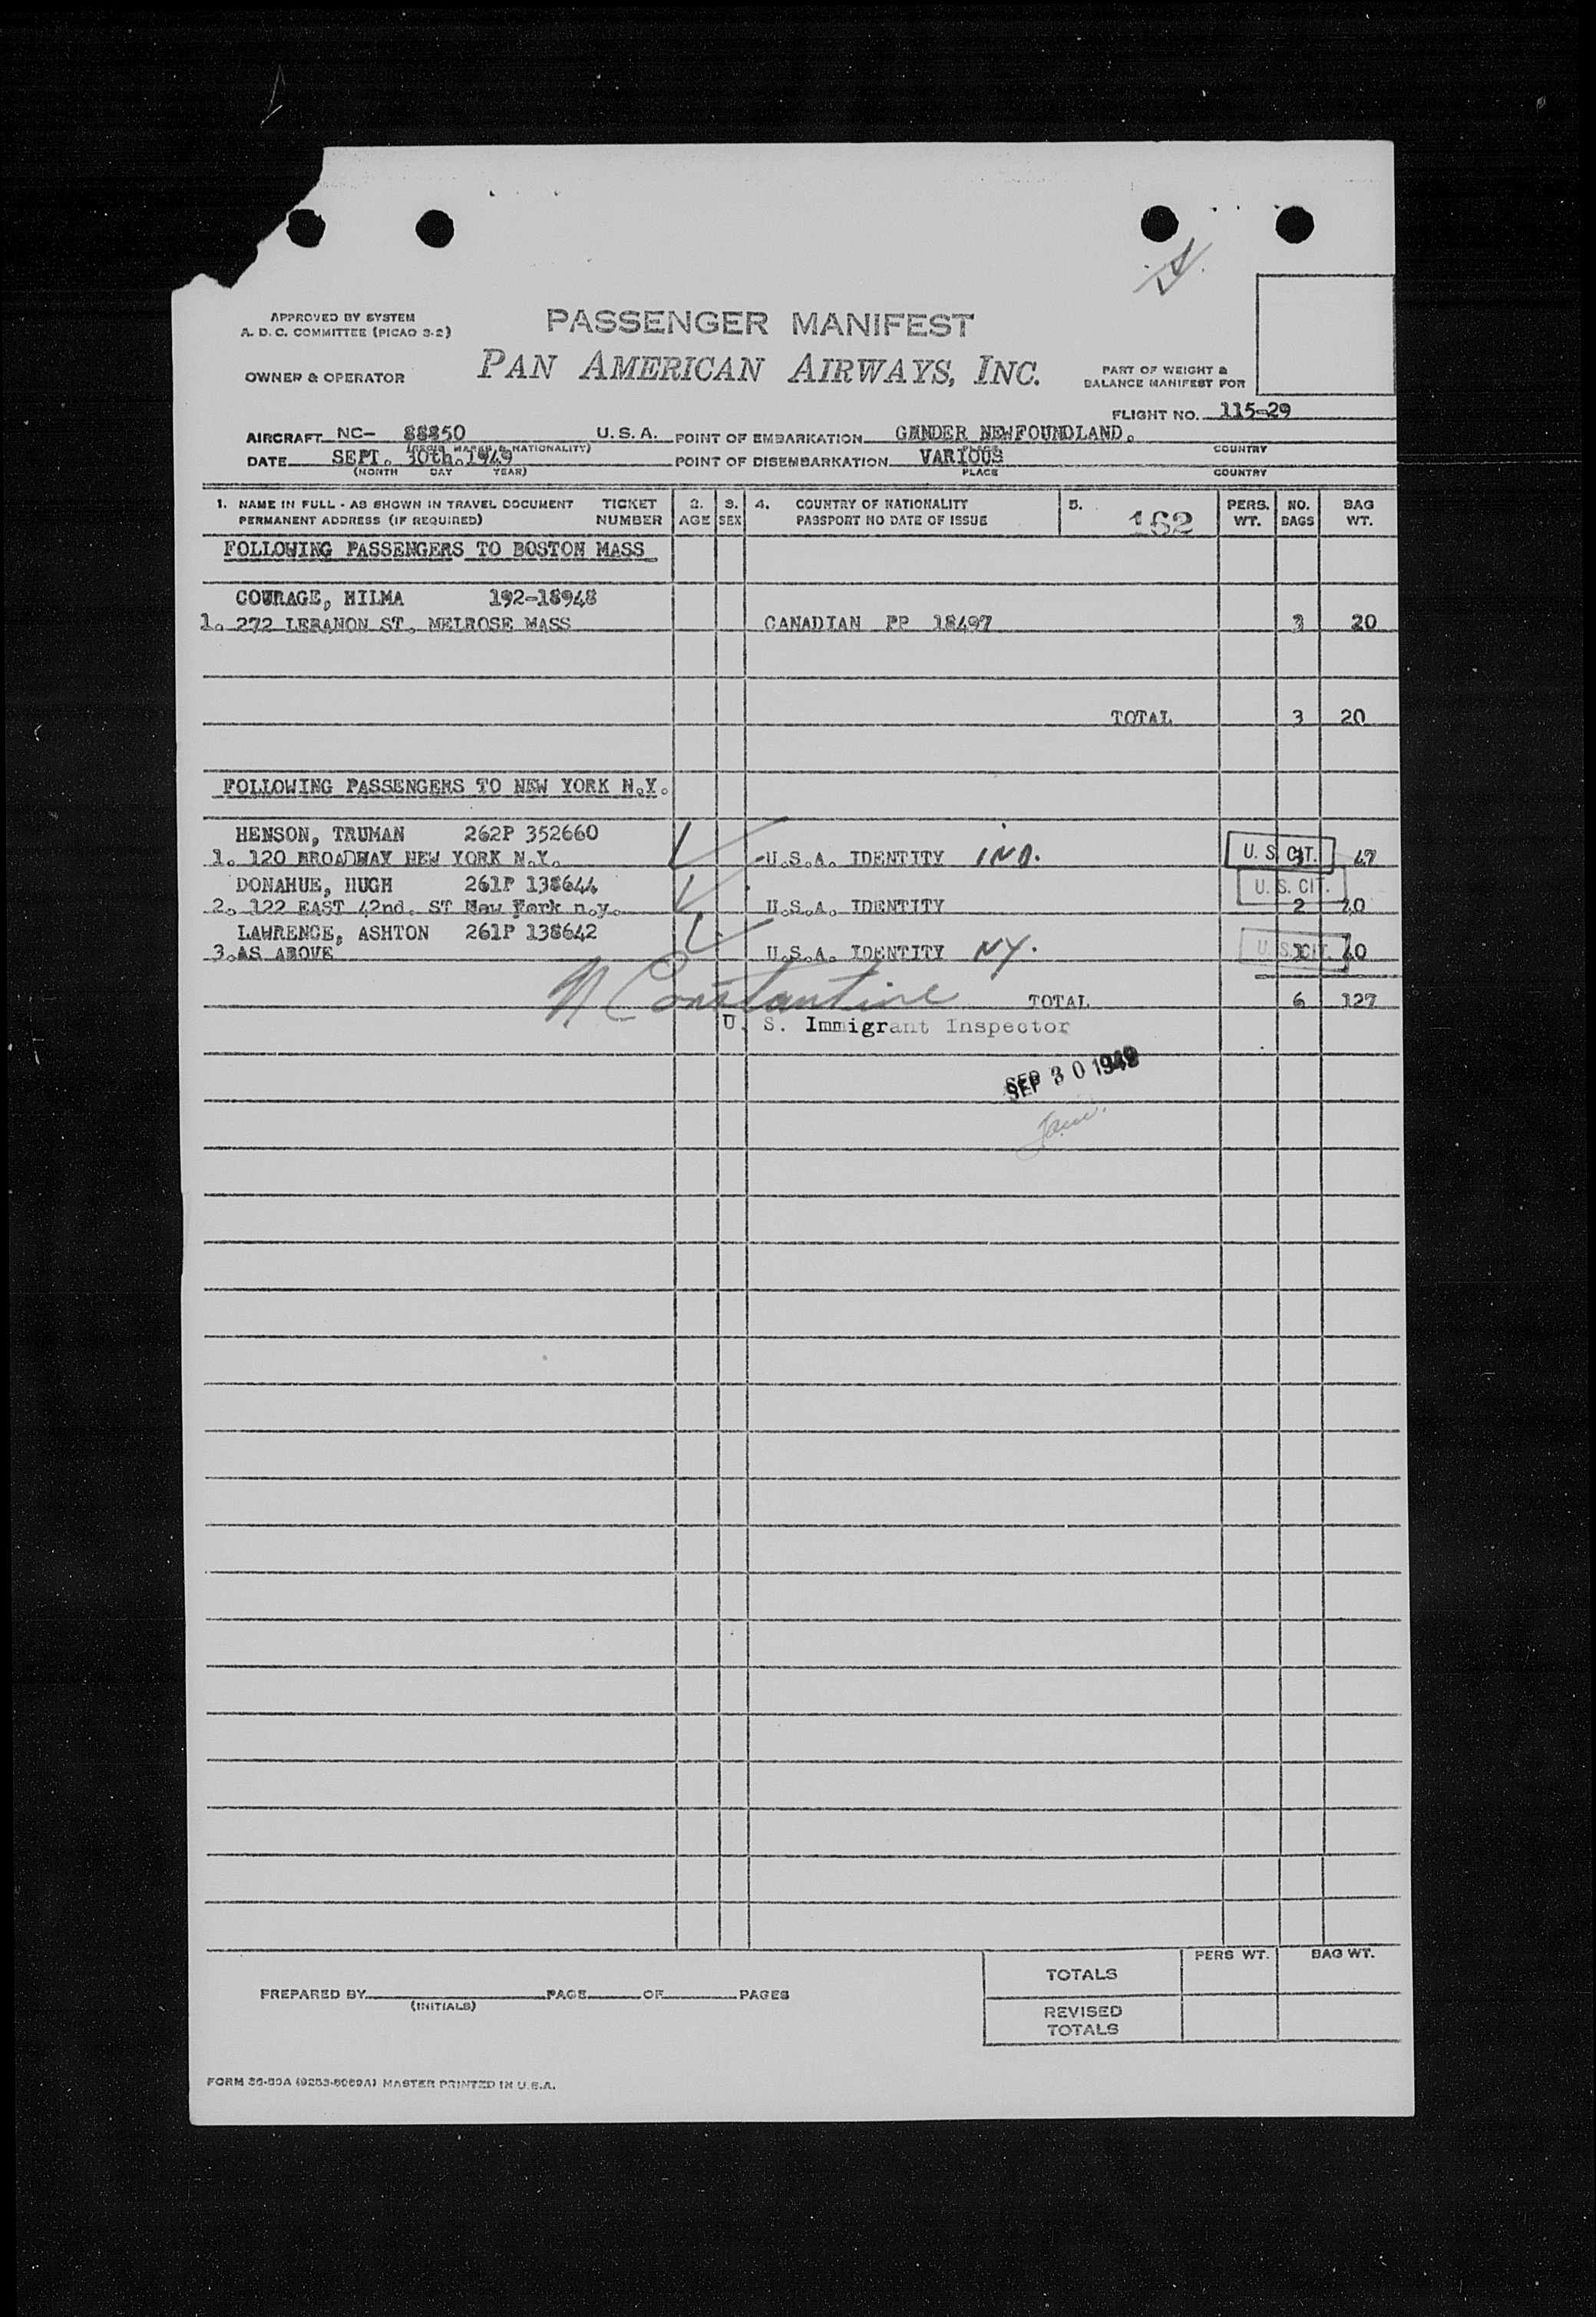 APPROVED BY SYSTEM
A. D. C. COMMITTEE (PICAO 3-2)
PASSENGER MANIFEST
OWNER & OPERATOR
PAN AMERICAN AIRWAYS, INC.
PART OF WEIGHT &
BALANCE MANIFEST FOR
FLIGHT NO. 115-29
AIRCRAFT NC- 88850 U. S. A. POINT OF EMBARKATION GANDER NEWFOUNDLAND.
(REGIS. MARKS & NATIONALITY) PLACE COUNTRY
DATE SEPT. 30th. 1949 POINT OF DISEMBARKATION VARIOUS
(MONTH DAY YEAR) PLACE COUNTRY
1. NAME IN FULL - AS SHOWN IN TRAVEL DOCUMENT TICKET 2. 3. 4. COUNTRY OF NATIONALITY 5. PERS. NO. BAG
PERMANENT ADDRESS (IF REQUIRED) NUMBER AGE SEX PASSPORT NO DATE OF ISSUE 162 WT. BAGS WT.
FOLLOWING PASSENGERS TO BOSTON MASS
COURAGE, HILMA 192-18948
1. 272 LEBANON ST, MELROSE MASS CANADIAN PP 18497 3 20
TOTAL 3 20
FOLLOWING PASSENGERS TO NEW YORK N.Y.
HENSON, TRUMAN 262P 352660
1. 120 BROADWAY NEW YORK N.Y. U.S.A. IDENTITY IND. U. S. CIT. 47
DONAHUE, HUGH 261P 138644
2. 122 EAST 42nd. ST New York n.y. U.S.A. IDENTITY U. S. CIT. 2 40
LAWRENCE, ASHTON 261P 138642
3. AS ABOVE U.S.A. IDENTITY NY. U. S. CIT. 40
N Constantine TOTAL 6 127
U. S. Immigrant Inspector
SEP 30 1949
PERS WT. BAG WT.
TOTALS
PREPARED BY PAGE OF PAGES
(INITIALS)
REVISED
TOTALS
FORM 36-50A (9253-8089A) MASTER PRINTED IN U.S.A.